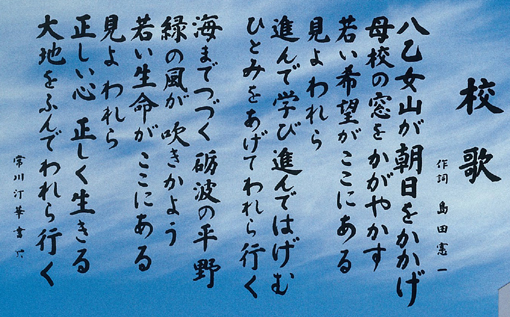 校歌
作詞 島田憲一
八乙女山が 朝日をかかげ
母校の窓を かがやかす
若い希望が ここにある
見よ われら
進んで学び 進んではげむ
ひとみをあげて われら行く
海までつづく 砺波の平野
緑の風が 吹きかよう
若い生命が ここにある
見よ われら
正しい心 正しく生きる
大地をふんで われら行く
常川汀華書